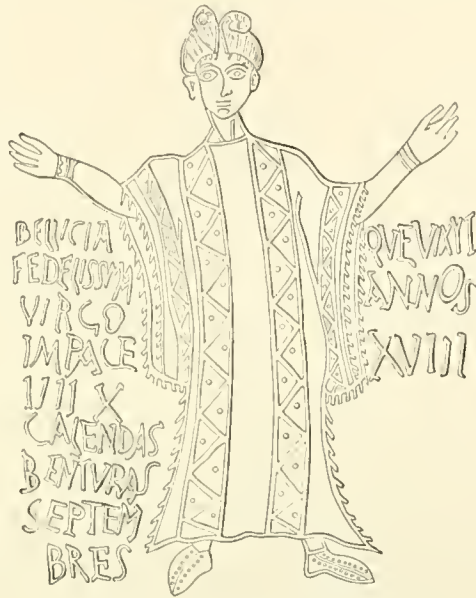 BELLICIA
FEDELISSIMA
VIRGO
IMPACE
IIII X
CALENDAS
BENTURAS
SEPTEM
BRES
QUE VIXIT
ANNOS
XVIII